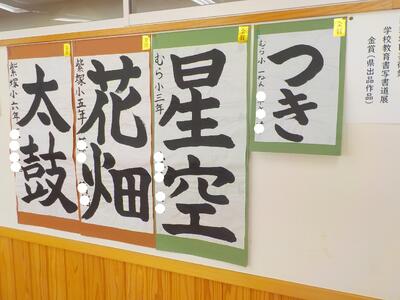 学校教育書写書道展
金賞(県出品作品)
金賞
つき
むら小一ねん
金賞
星空
むら小三年
金賞
花畑
紫塚小五年
金賞
太鼓
紫塚小六年